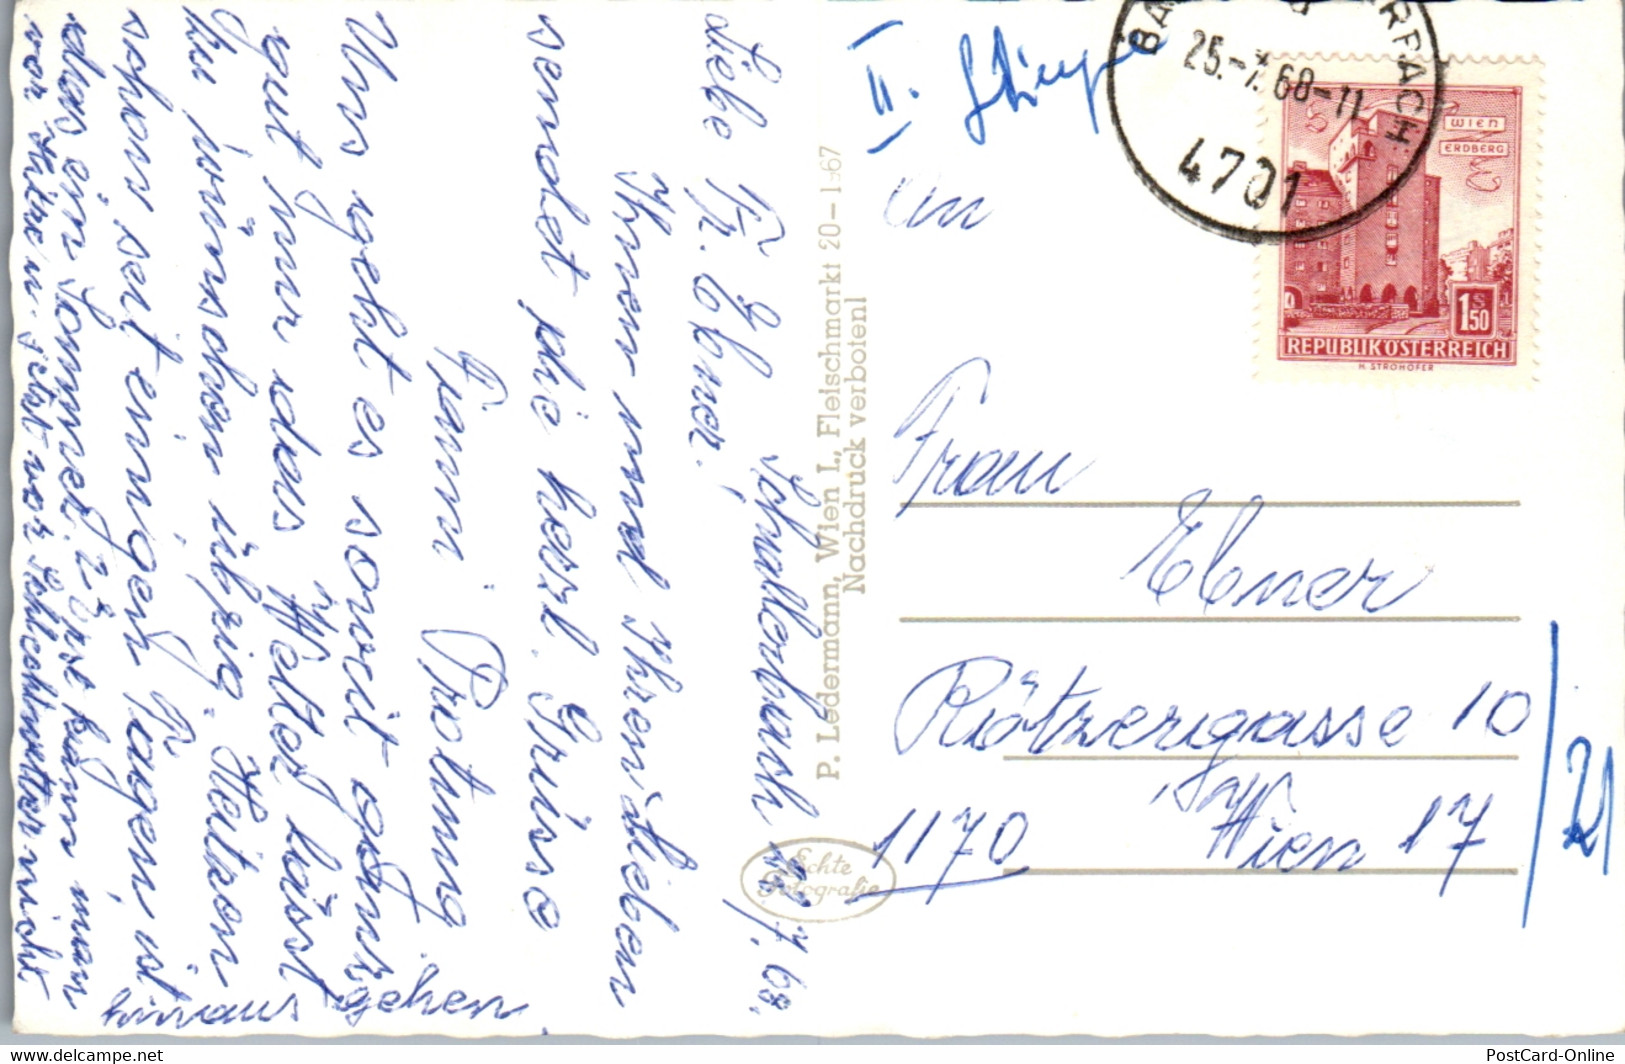 Schallerbach 7. 68.
Liebe Fr. Ebner!
Ihnen und Ihren Lieben
sendet die herzl. Grüsse
Fanni
Uns geht es soweit ganz
gut nur das Wetter lässt
zu wünschen übrig. Heitzen
schon seit einigen Tagen, ist
das ein Sommer, zuerst kann man
vor Hitze u. jetzt vor Schlechtwetter nicht
hinaus gehen.
P. Ledermann, Wien I., Fleischmarkt 20 – 1967
Nachdruck verboten!
Echte
Fotografie
II.
An
Frau
Ebner
Rötzergasse 10
/21
1170 Wien 17
25.-7.68-11
4701
WIEN
ERDBERG
1 S 50
REPUBLIK ÖSTERREICH
H. STROHOFER
https://www.delcampe.net
PostCard-Online